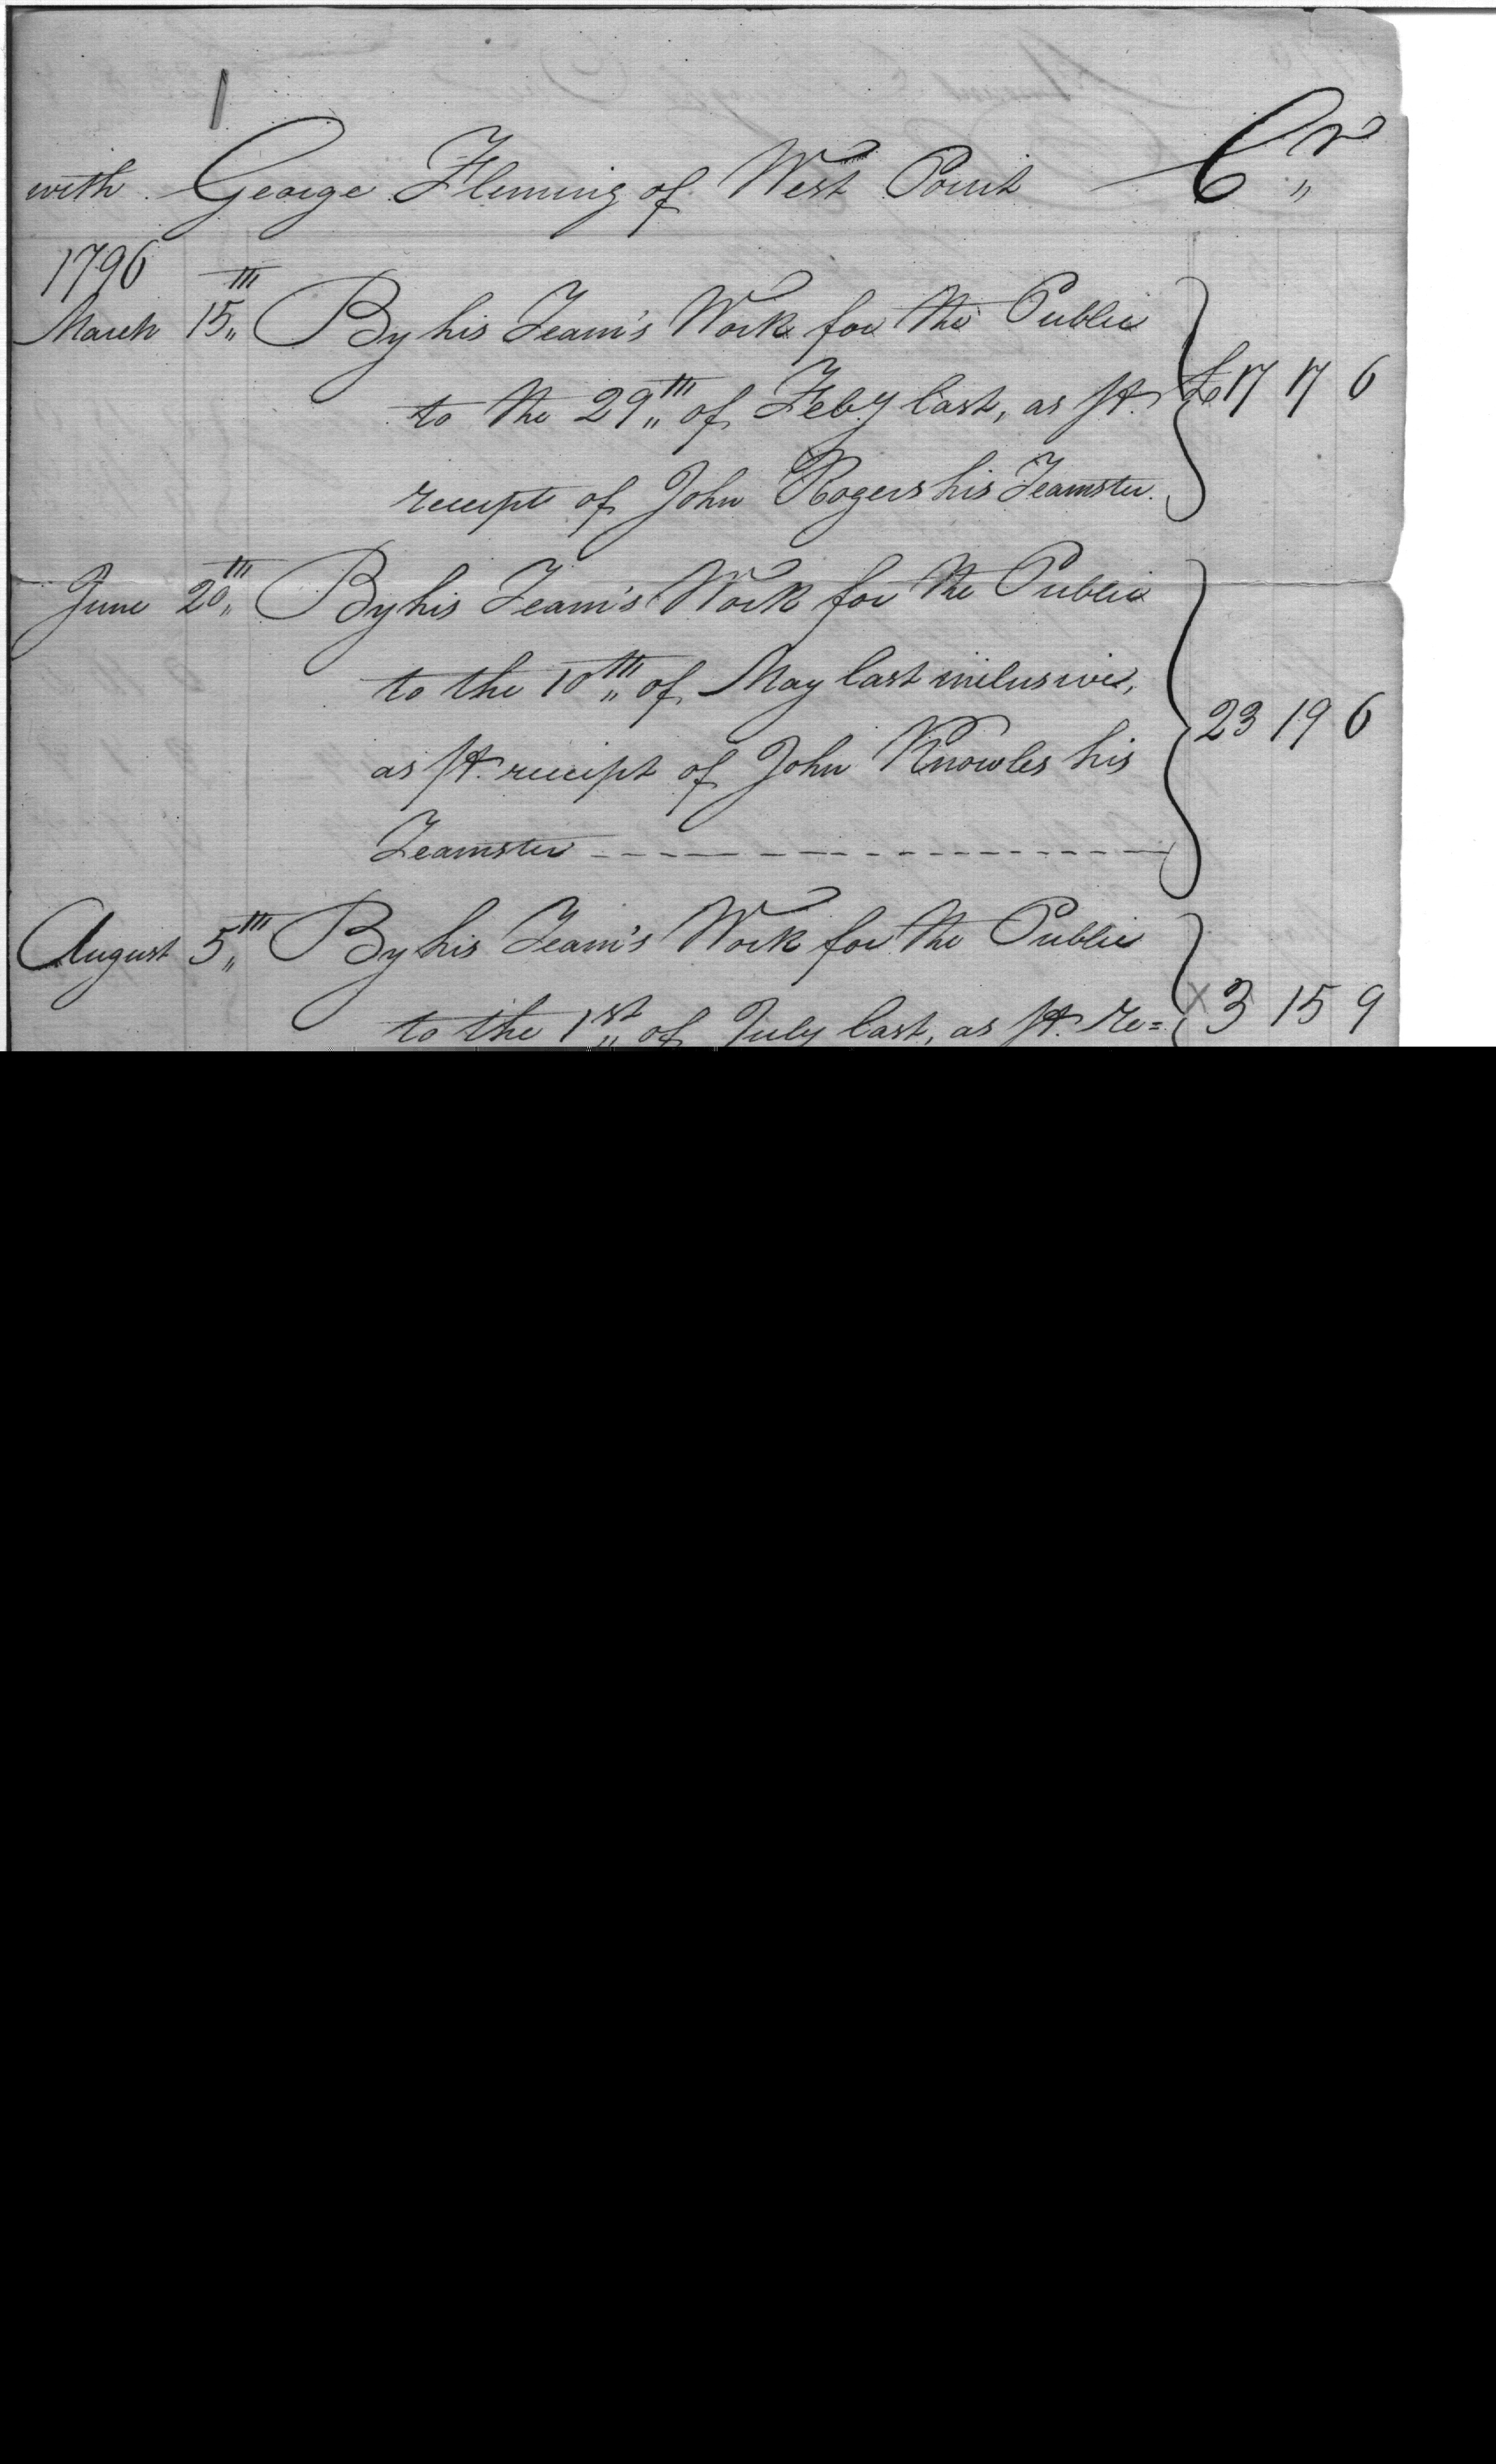 with George Fleming of West Point Cr
1796
March 15th By his Team's Work for the Public
to the 29th of Feby last, as pr. £17 17 6
receipt of John Rogers his Teamster.
June 20th By his Team's Work for the Public
to the 10th of May last inclusive,
23 19 6
as pr. receipt of John Knowles his
Teamster
August 5th By his Team's Work for the Public
to the 1st of July last, as pr. re= x 3 15 9